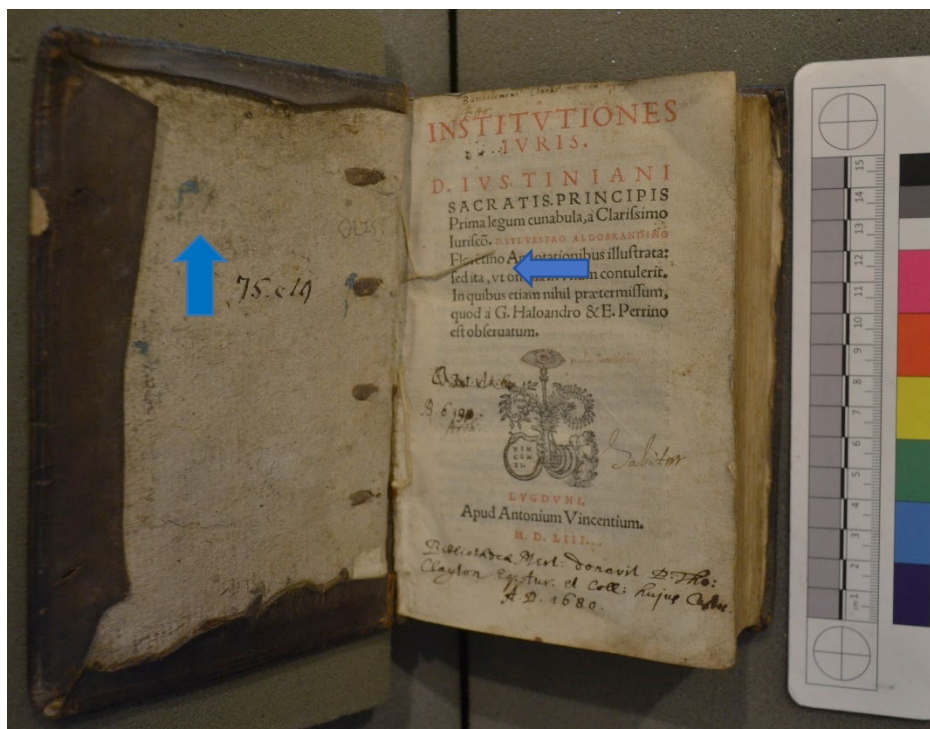 75. c 19
INSTITVTIONES
IVRIS.
D. IVSTINIANI
SACRATIS. PRINCIPIS
Prima legum cunabula, à Clarissimo
Iuriscō. D. SYLVESTRO ALDOBRANDINO
Florētino Annotationibus illustrata:
sed ita, vt contulerit.
In quibus etiam nihil prætermissum,
quod à G. Haloandro & E. Perrino
est obseruatum.
B 6 19
VIN
CEN
TI.
LVGDVNI,
Apud Antonium Vincentium.
M. D. LIII.
Bibliothecæ Mert: donavit D: Tho:
Clayton Eq: Aur. et Coll: hujus Custos.
A. D. 1680.
15
14
13
12
11
10
9
8
7
6
5
4
3
2
cm 1